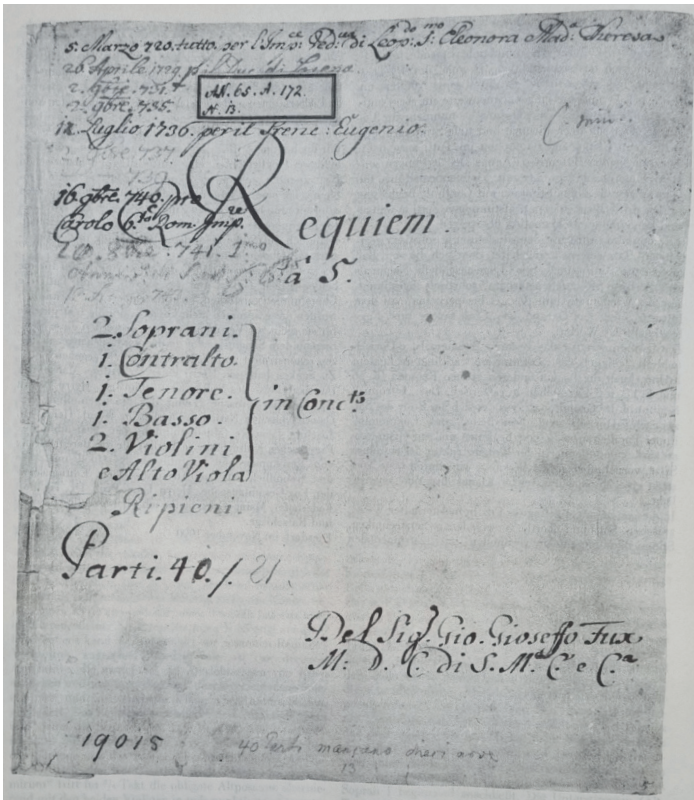 5. Marzo 720. tutto per l'Imp:ce Ved:va di Leop:do I:mo Eleonora Mad:a Teresa
26 Aprile 1729. p il Duc: di Lorena
2. 731
2. 9bre. 735.
AN. 65. A. 172.
N. 13.
12. Luglio 1736. per il Prenc: Eugenio.
C. min:
2. 9bre 737.
739
16. 9bre. 740. pro
Carolo 6:to Rom. Imp:re
Requiem.
20. 8bre. 741. 1:mo
à 5.
2. Soprani.
1. Contralto.
1. Tenore.
1. Basso.
2. Violini
e Alto Viola
in Conc:to
Ripieni.
Parti. 40. /. 21.
Del Sig:r Gio. Gioseffo Fux
M: D. C. di S. M:a C: e C:a
19015
40 Parti
13
5